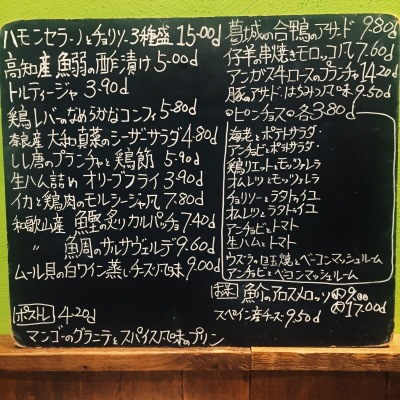 ハモンセラーノとチョリソー3種盛 15-00d
高知産 魚弱の酢漬け 5-00d
トルティージャ 3.90d
鶏レバーのなめらかなコンフィ 5-80d
奈良産 大和真菜のシーザーサラダ 4.80d
しし唐のプランチャと鶏節 5.90d
生ハム詰め オリーブフライ 3.90d
イカと鶏肉のモルシージャ風 7.80d
和歌山産 鰹の炙りカルパッチョ 7.40d
〃 鯛のサルサヴェルデ 9.60d
ムール貝の白ワイン蒸しチーズ風味 9.00d
ポストレ 4-20d
マンゴーのグラニテとスパイス風味のプリン
葛城の合鴨のアサード 9.80d
仔羊の串焼きモロッコ風 7.60d
アンガス牛ロースのプランチャ 14-20d
豚のアサード はちみつ風味 9.50d
○ピンチョス○各3.80d
海老とポテトサラダ・
アンチョビとポテトサラダ・
鶏リエットとモッツァレラ
オムレツとモッツァレラ
チョリソーとラタトゥイユ
オムレツとラタトゥイユ
アンチョビとトマト
生ハムとトマト
ウズラの目玉焼とベーコンマッシュルーム
アンチョビとベーコンマッシュルーム
お米 魚介のアロスメロッソ 小9.00 大17.00d
スペイン産チーズ 9.50d